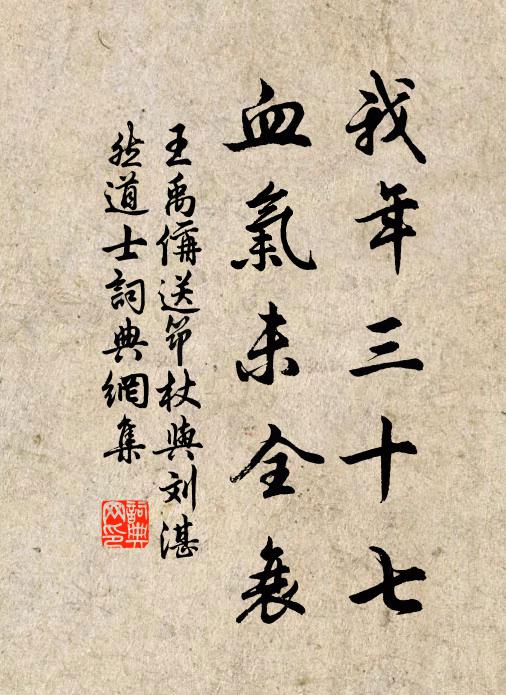 我年三十七
血氣未全衰
王禹偁送笻杖與刘湛
然道士詞典網集
詞典
网印